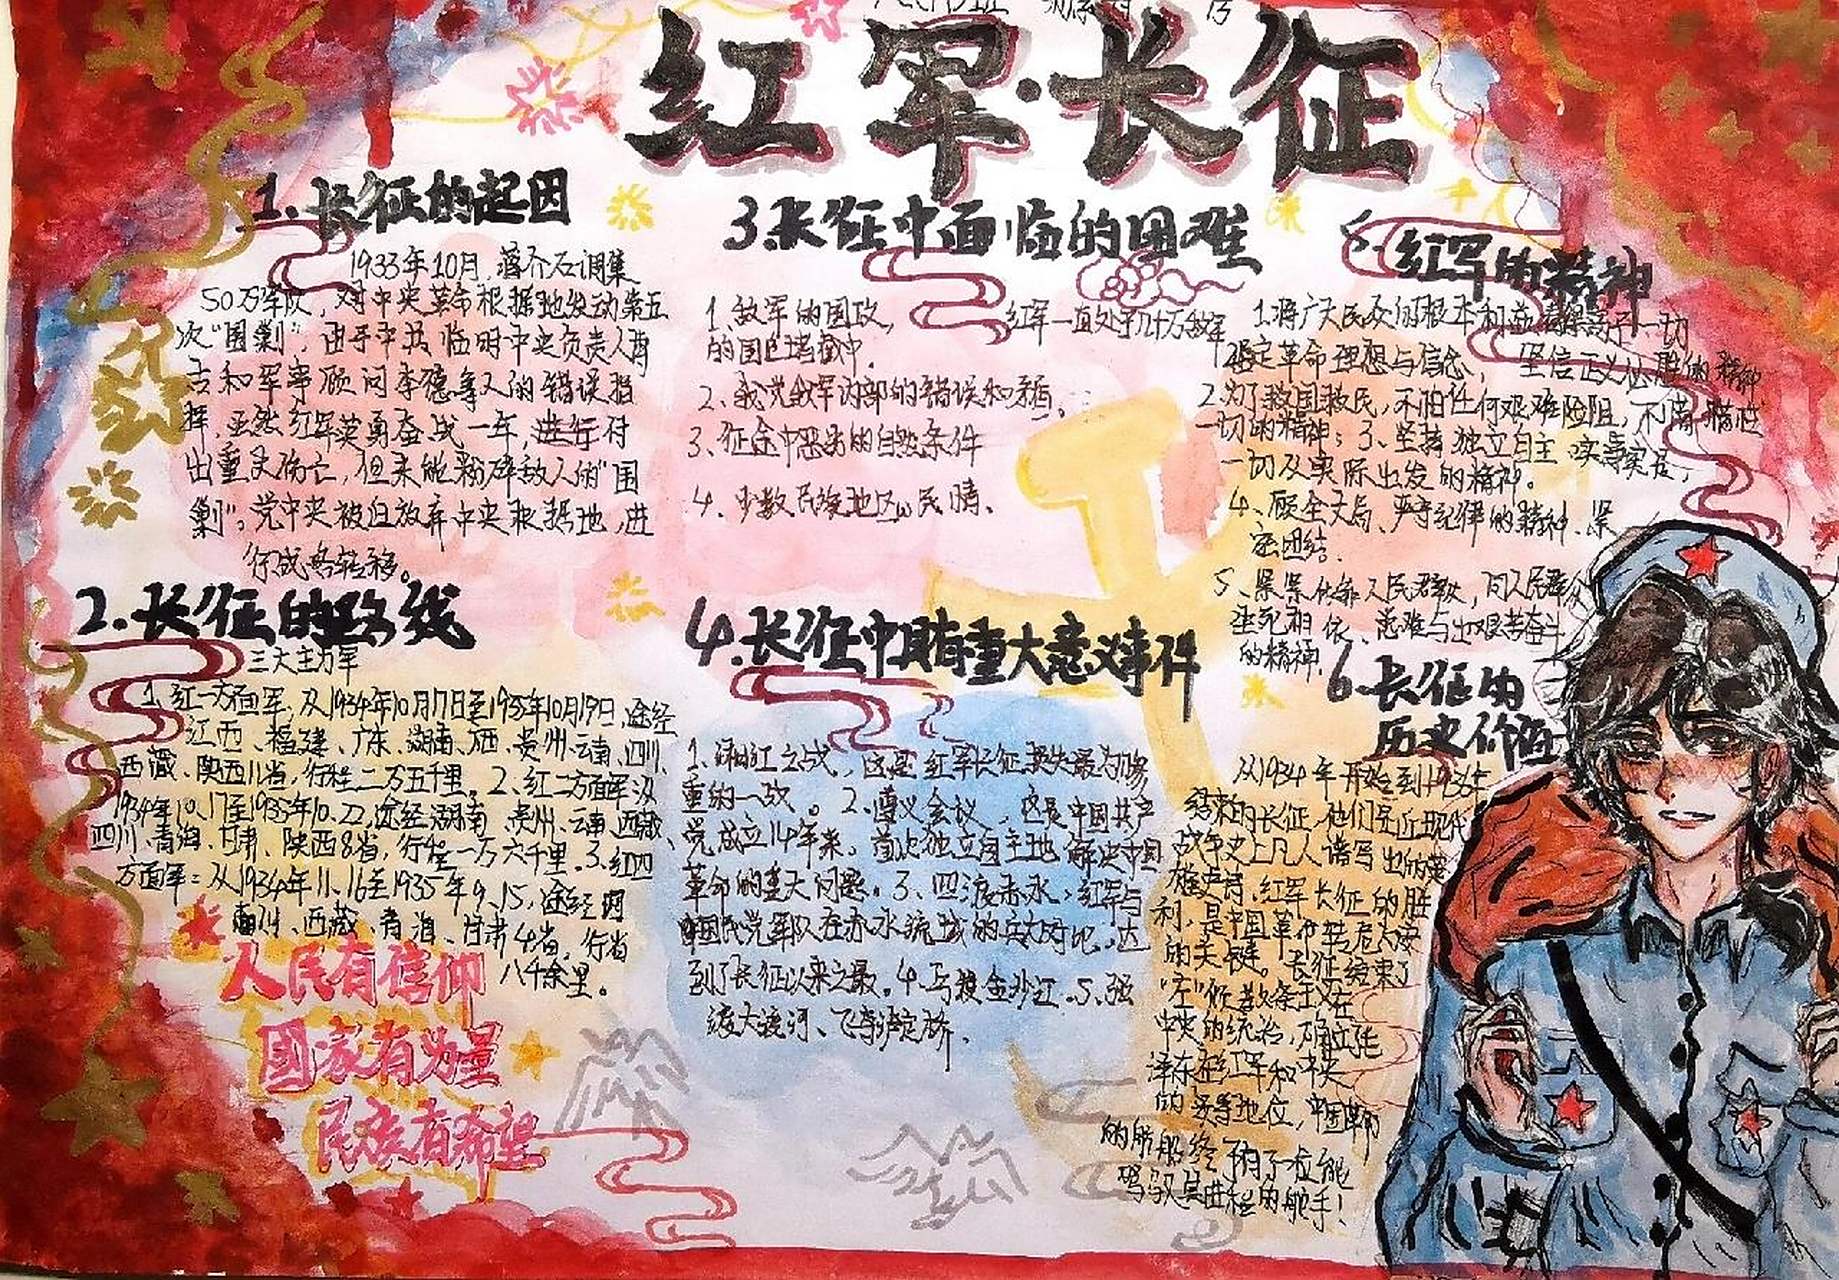 红军·长征
1.长征的起因
1933年10月,蒋介石调集
50万军队,对中央革命根据地发动第五
次"围剿",由于中共临时中央负责人博
古和军事顾问李德等人的错误指
挥,虽然红军英勇奋战一年,进行付
出重大伤亡,但未能粉碎敌人的"围
剿",党中央被迫放弃中央根据地,进
行战略转移。
2.长征的路线
三大主力军
1.红一方面军,从1934年10月17日至1935年10月19日,途经
江西、福建、广东、湖南、广西、贵州、云南、四川、
西藏、陕西11省,行程二万五千里。2、红二方面军从
1934年10.17至1935年10.22,途经湖南、贵州、云南、西藏、
四川、青海、甘肃、陕西8省,行程一万六千里.3、红四
方面军:从1934年11.16至1935年9.15,途经四
川、西藏、青海、甘肃4省,行省
八千余里。
人民有信仰
國家有力量
民族有希望
3.长征中面临的困难
1、敌军的围攻,红军一直处于几十万敌军
的围追堵截中.
2、我党我军内部的错误和矛盾。
3、征途中恶劣的自然条件
4、少数民族地区的民情、
4.长征中具有重大意义事件
1、湘江之战,这是红军长征损失最为惨
重的一战。2、遵义会议,这是中国共产
党成立14年来,首次独立自主地解决中国
革命的重大问题。3、四渡赤水:红军与
中国国民党军队在赤水流域的对比,达
到了长征以来之最。4、巧渡金沙江.5、强
渡大渡河、飞夺泸定桥.
6.红军的精神
1.将广大民众的根本利益看得高于一切
坚定革命理想与信念,坚信正义必胜的精神
2.为了救国救民,不怕任何艰难险阻,不惜牺牲
一切的精神;3、坚持独立自主,实事求是,
一切从实际出发的精神。
4、顾全大局、严守纪律的精神、紧
密团结.
5、紧紧依靠人民群众,同人民群众
生死相依、患难与共艰苦奋斗
的精神.
6.长征的
历史价值
从1934年开始到1936年
结束的长征,他们是近现代
战争史上凡人谱写出的英
雄史诗.红军长征的胜
利,是中国革命转危为安
的关键。长征结束了
"左"倾教条主义在
中央的统治,确立毛
泽东在红军和中央
的领导地位,中国革命
的航船终于有了一位能
驾驭其进程的舵手!